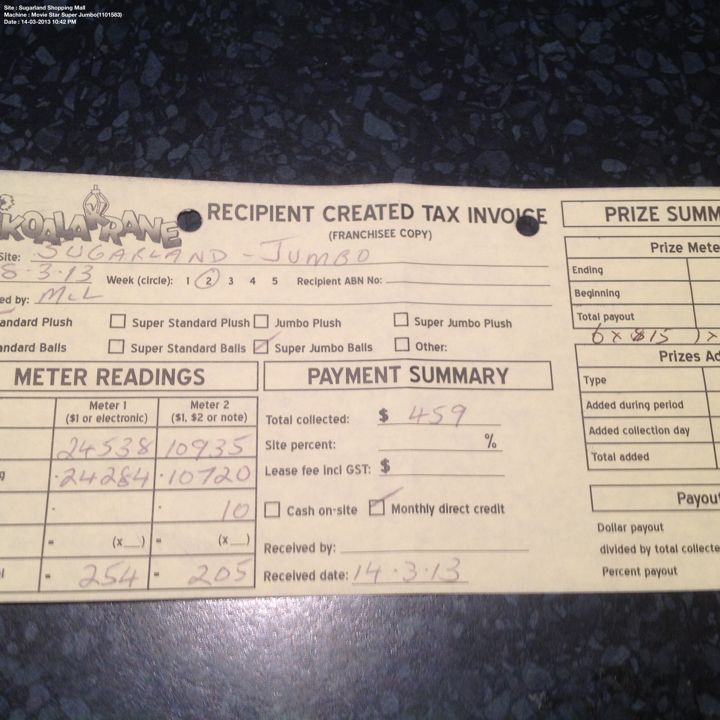 Site : Sugarland Shopping Mall
Machine : Movie Star Super Jumbo(1101583)
Date : 14-03-2013 10:42 PM
KOALA KRANE
RECIPIENT CREATED TAX INVOICE
(FRANCHISEE COPY)
Site: SUGARLAND - JUMBO
8.3.13 Week (circle): 1 2 3 4 5 Recipient ABN No:
ed by: McL
andard Plush Super Standard Plush Jumbo Plush Super Jumbo Plush
andard Balls Super Standard Balls Super Jumbo Balls Other:
METER READINGS
Meter 1 Meter 2
($1 or electronic) ($1, $2 or note)
24538 10935
g -24284 -10720
- 10
= (x__) = (x__)
l = 254 = 205
PAYMENT SUMMARY
Total collected: $ 459
Site percent: %
Lease fee incl GST: $
Cash on-site Monthly direct credit
Received by:
Received date: 14.3.13
PRIZE SUMM
Prize Mete
Ending
Beginning
Total payout
6 x $15 ) x
Prizes Ad
Type
Added during period
Added collection day
Total added
Payou
Dollar payout
divided by total collecte
Percent payout